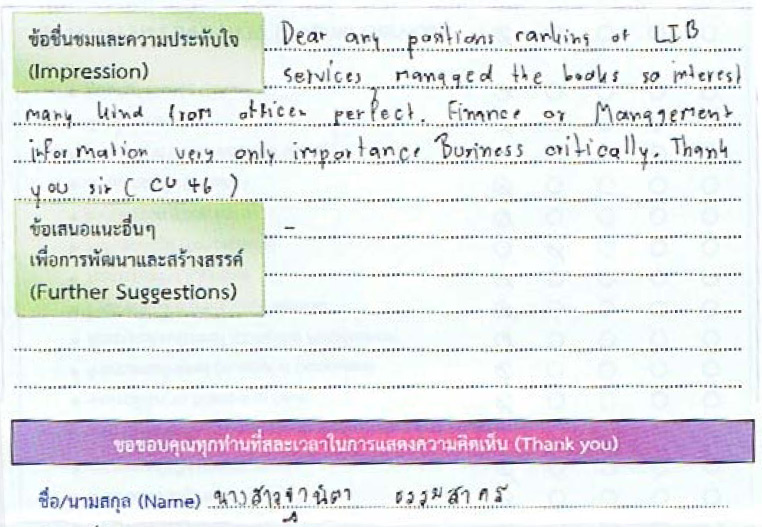 ข้อชื่นชมและความประทับใจ Dear any positions ranking of LIB
(Impression) services managed the books so interest
many kind from officer perfect. Finance or Management
information very only importance Business critically. Thank
you sir ( CU 46 )
ข้อเสนอแนะอื่นๆ -
เพื่อการพัฒนาและสร้างสรรค์
(Further Suggestions)
ขอขอบคุณทุกท่านที่สละเวลาในการแสดงความคิดเห็น (Thank you)
ชื่อ/นามสกุล (Name) นางสาว